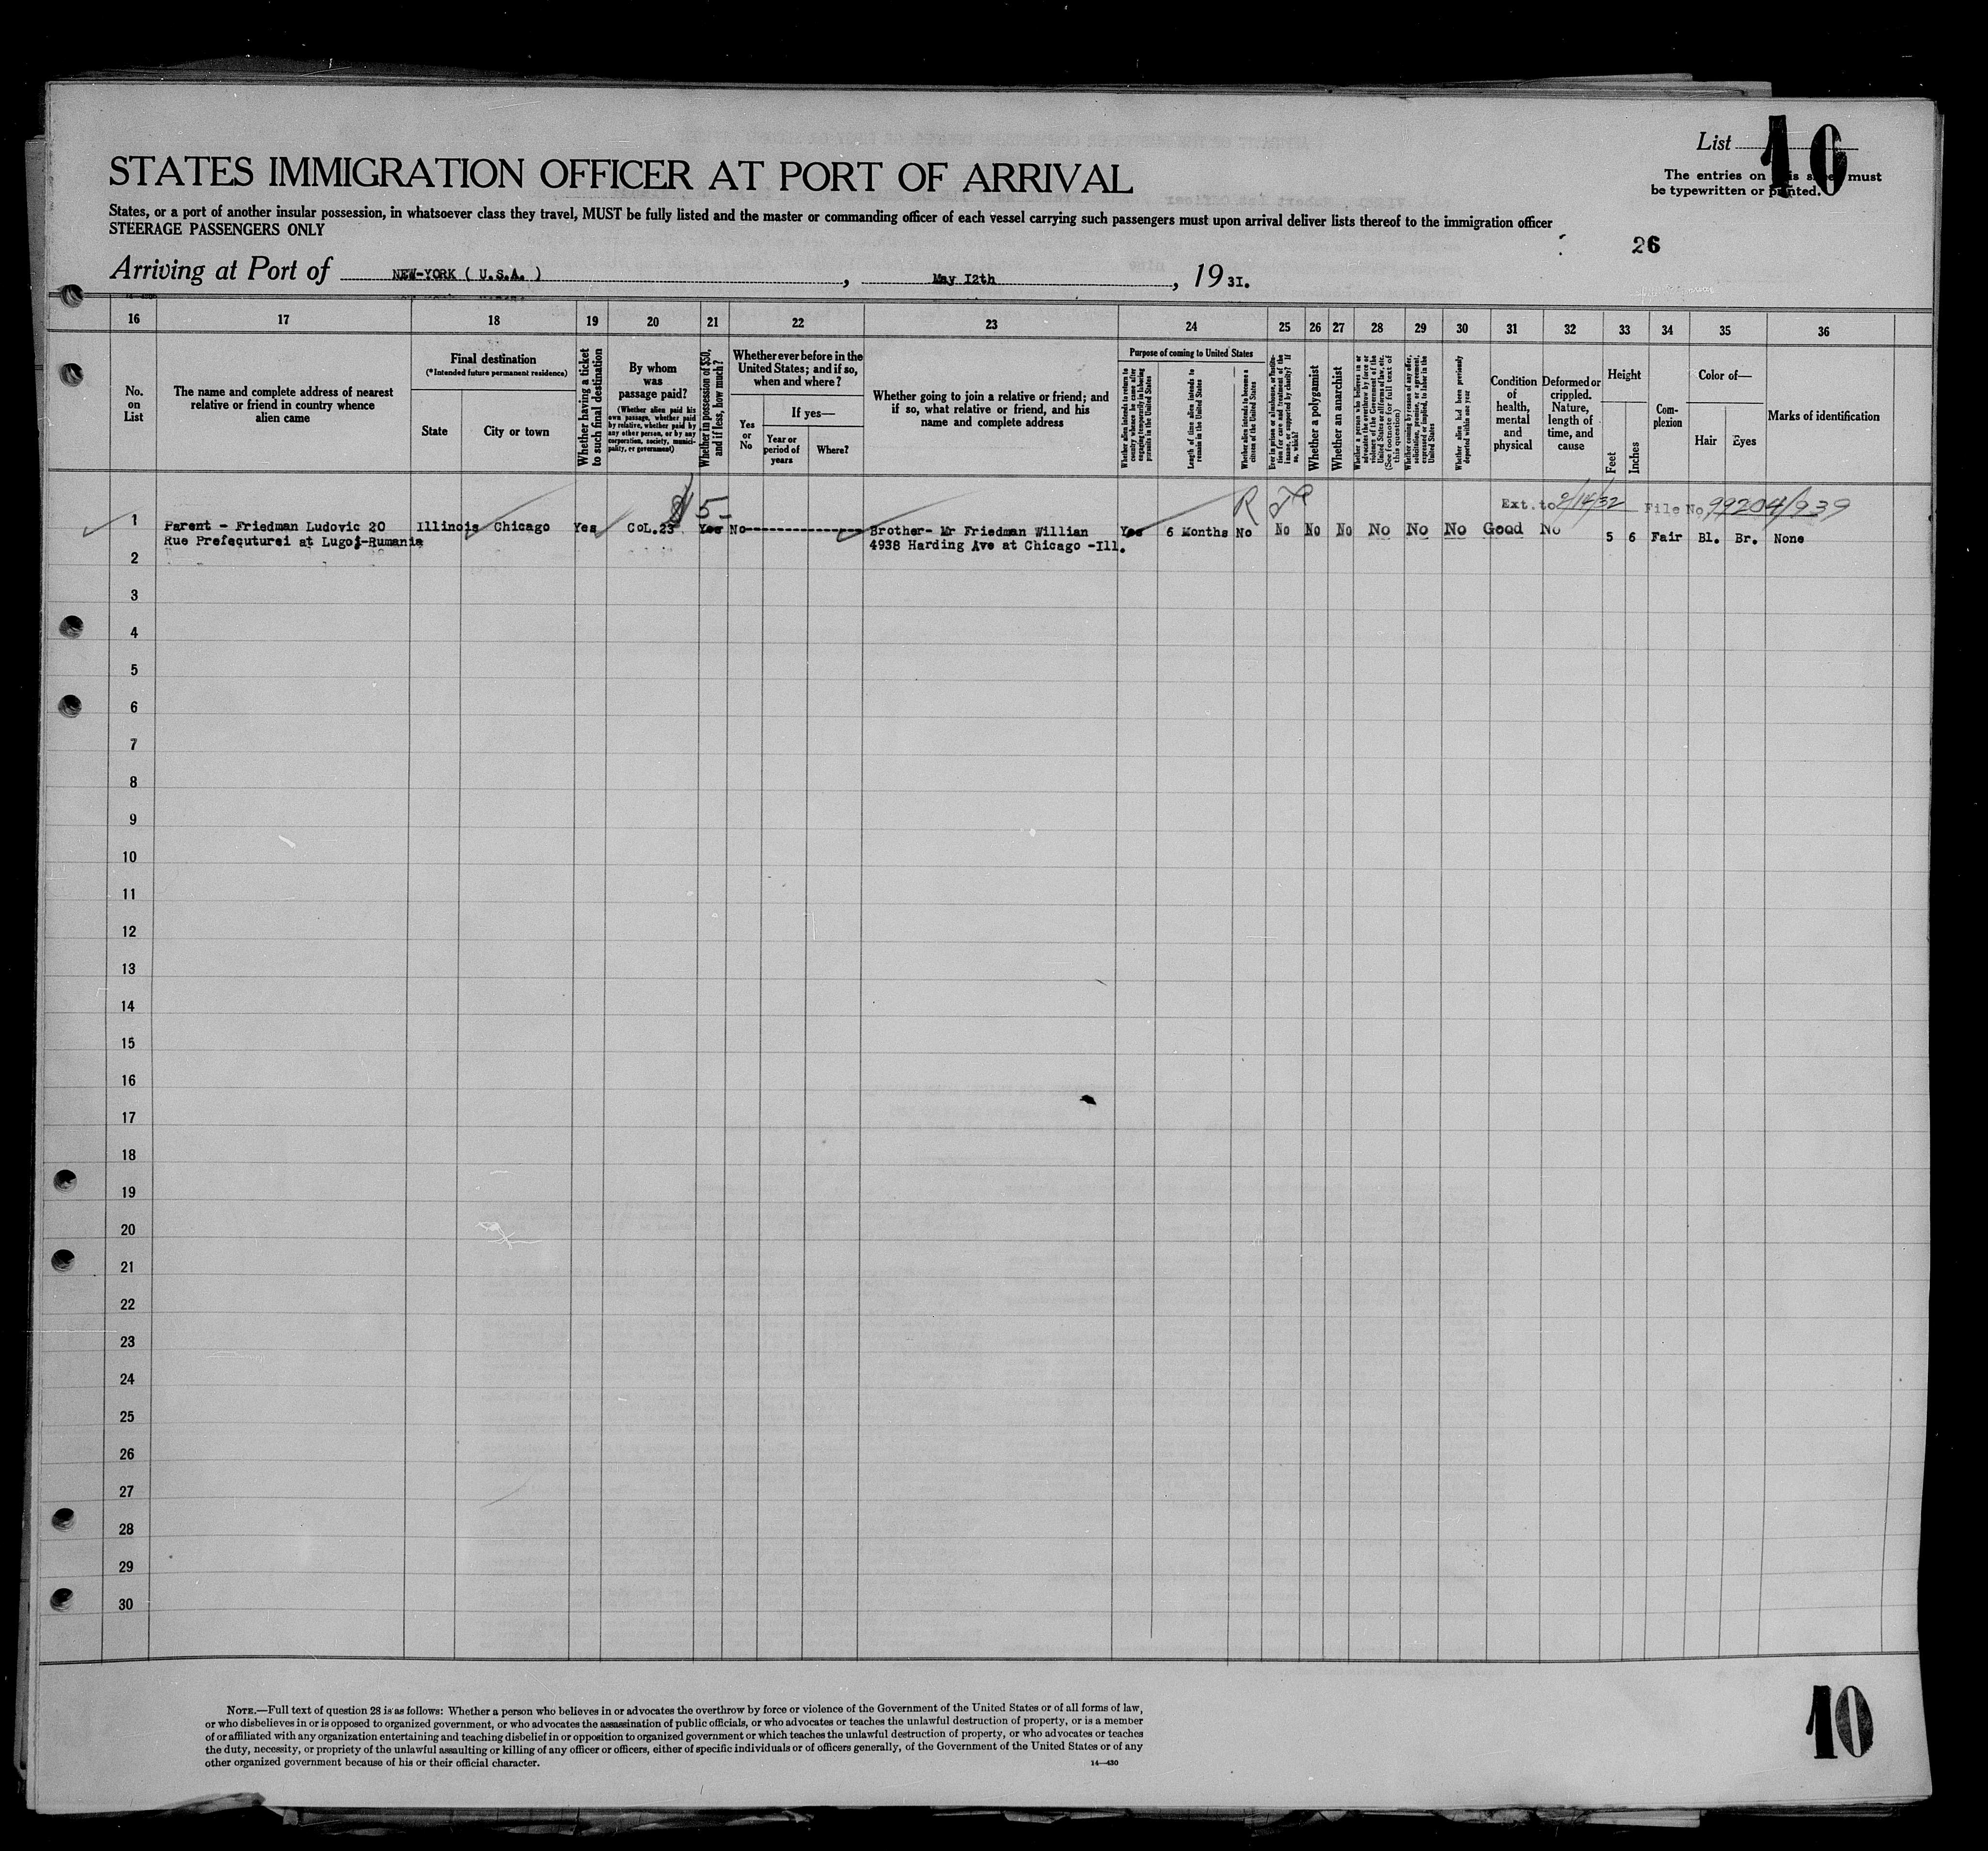 List 10
The entries on this sheet must
be typewritten or printed.
STATES IMMIGRATION OFFICER AT PORT OF ARRIVAL
States, or a port of another insular possession, in whatsoever class they travel, MUST be fully listed and the master or commanding officer of each vessel carrying such passengers must upon arrival deliver lists thereof to the immigration officer
STEERAGE PASSENGERS ONLY
26
Arriving at Port of NEW-YORK ( U.S.A. ), May I2th, 19 3I.
16 17 18 19 20 21 22 23 24 25 26 27 28 29 30 31 32 33 34 35 36
No.
on
List
The name and complete address of nearest
relative or friend in country whence
alien came
Final destination
(*Intended future permanent residence)
State
City or town
Whether having a ticket
to such final destination
By whom
was
passage paid?
(Whether alien paid his
own passage, whether paid
by relative, whether paid by
any other person, or by any
corporation, society, munici-
pality, or government)
Whether in possession of $50,
and if less, how much?
Whether ever before in the
United States; and if so,
when and where?
Yes
or
No
If yes—
Year or
period of
years
Where?
Whether going to join a relative or friend; and
if so, what relative or friend, and his
name and complete address
Purpose of coming to United States
Whether alien intends to return to
country whence he came after
engaging temporarily in laboring
pursuits in the United States
Length of time alien intends to
remain in the United States
Whether alien intends to become a
citizen of the United States
Ever in prison or almshouse, or institu-
tion for care and treatment of the
insane, or supported by charity? If
so, which?
Whether a polygamist
Whether an anarchist
Whether a person who believes in or
advocates the overthrow by force or
violence of the Government of the
United States or all forms of law, etc.
(See footnote for full text of
this question)
Whether coming by reason of any offer,
solicitation, promise, or agreement,
expressed or implied, to labor in the
United States
Whether alien had been previously
deported within one year
Condition
of
health,
mental
and
physical
Deformed or
crippled.
Nature,
length of
time, and
cause
Height
Feet
Inches
Com-
plexion
Color of—
Hair
Eyes
Marks of identification
$ 5- R Ext. to 2/14/32 File No. 99204/939
1 Parent - Friedman Ludovic 20 Illinois Chicago Yes CoL.23 Yes No---------------- Brother- Mr Friedman Willian Yes 6 Months No No No No No No No Good No 5 6 Fair Bl. Br. None
Rue Prefecuturei at Lugoj-Rumania 4938 Harding Ave at Chicago -Ill.
2
3
4
5
6
7
8
9
10
11
12
13
14
15
16
17
18
19
20
21
22
23
24
25
26
27
28
29
30
NOTE.—Full text of question 28 is as follows: Whether a person who believes in or advocates the overthrow by force or violence of the Government of the United States or of all forms of law,
or who disbelieves in or is opposed to organized government, or who advocates the assassination of public officials, or who advocates or teaches the unlawful destruction of property, or is a member
of or affiliated with any organization entertaining and teaching disbelief in or opposition to organized government or which teaches the unlawful destruction of property, or who advocates or teaches
the duty, necessity, or propriety of the unlawful assaulting or killing of any officer or officers, either of specific individuals or of officers generally, of the Government of the United States or of any
other organized government because of his or their official character.
14—430
10